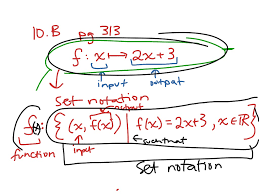 10.B pg 313
f: x ↦ 2x+3
input output
set notation
output
f(x): { (x, f(x)) | f(x) = 2x+3, x ∈ ℝ }
function input
set notation